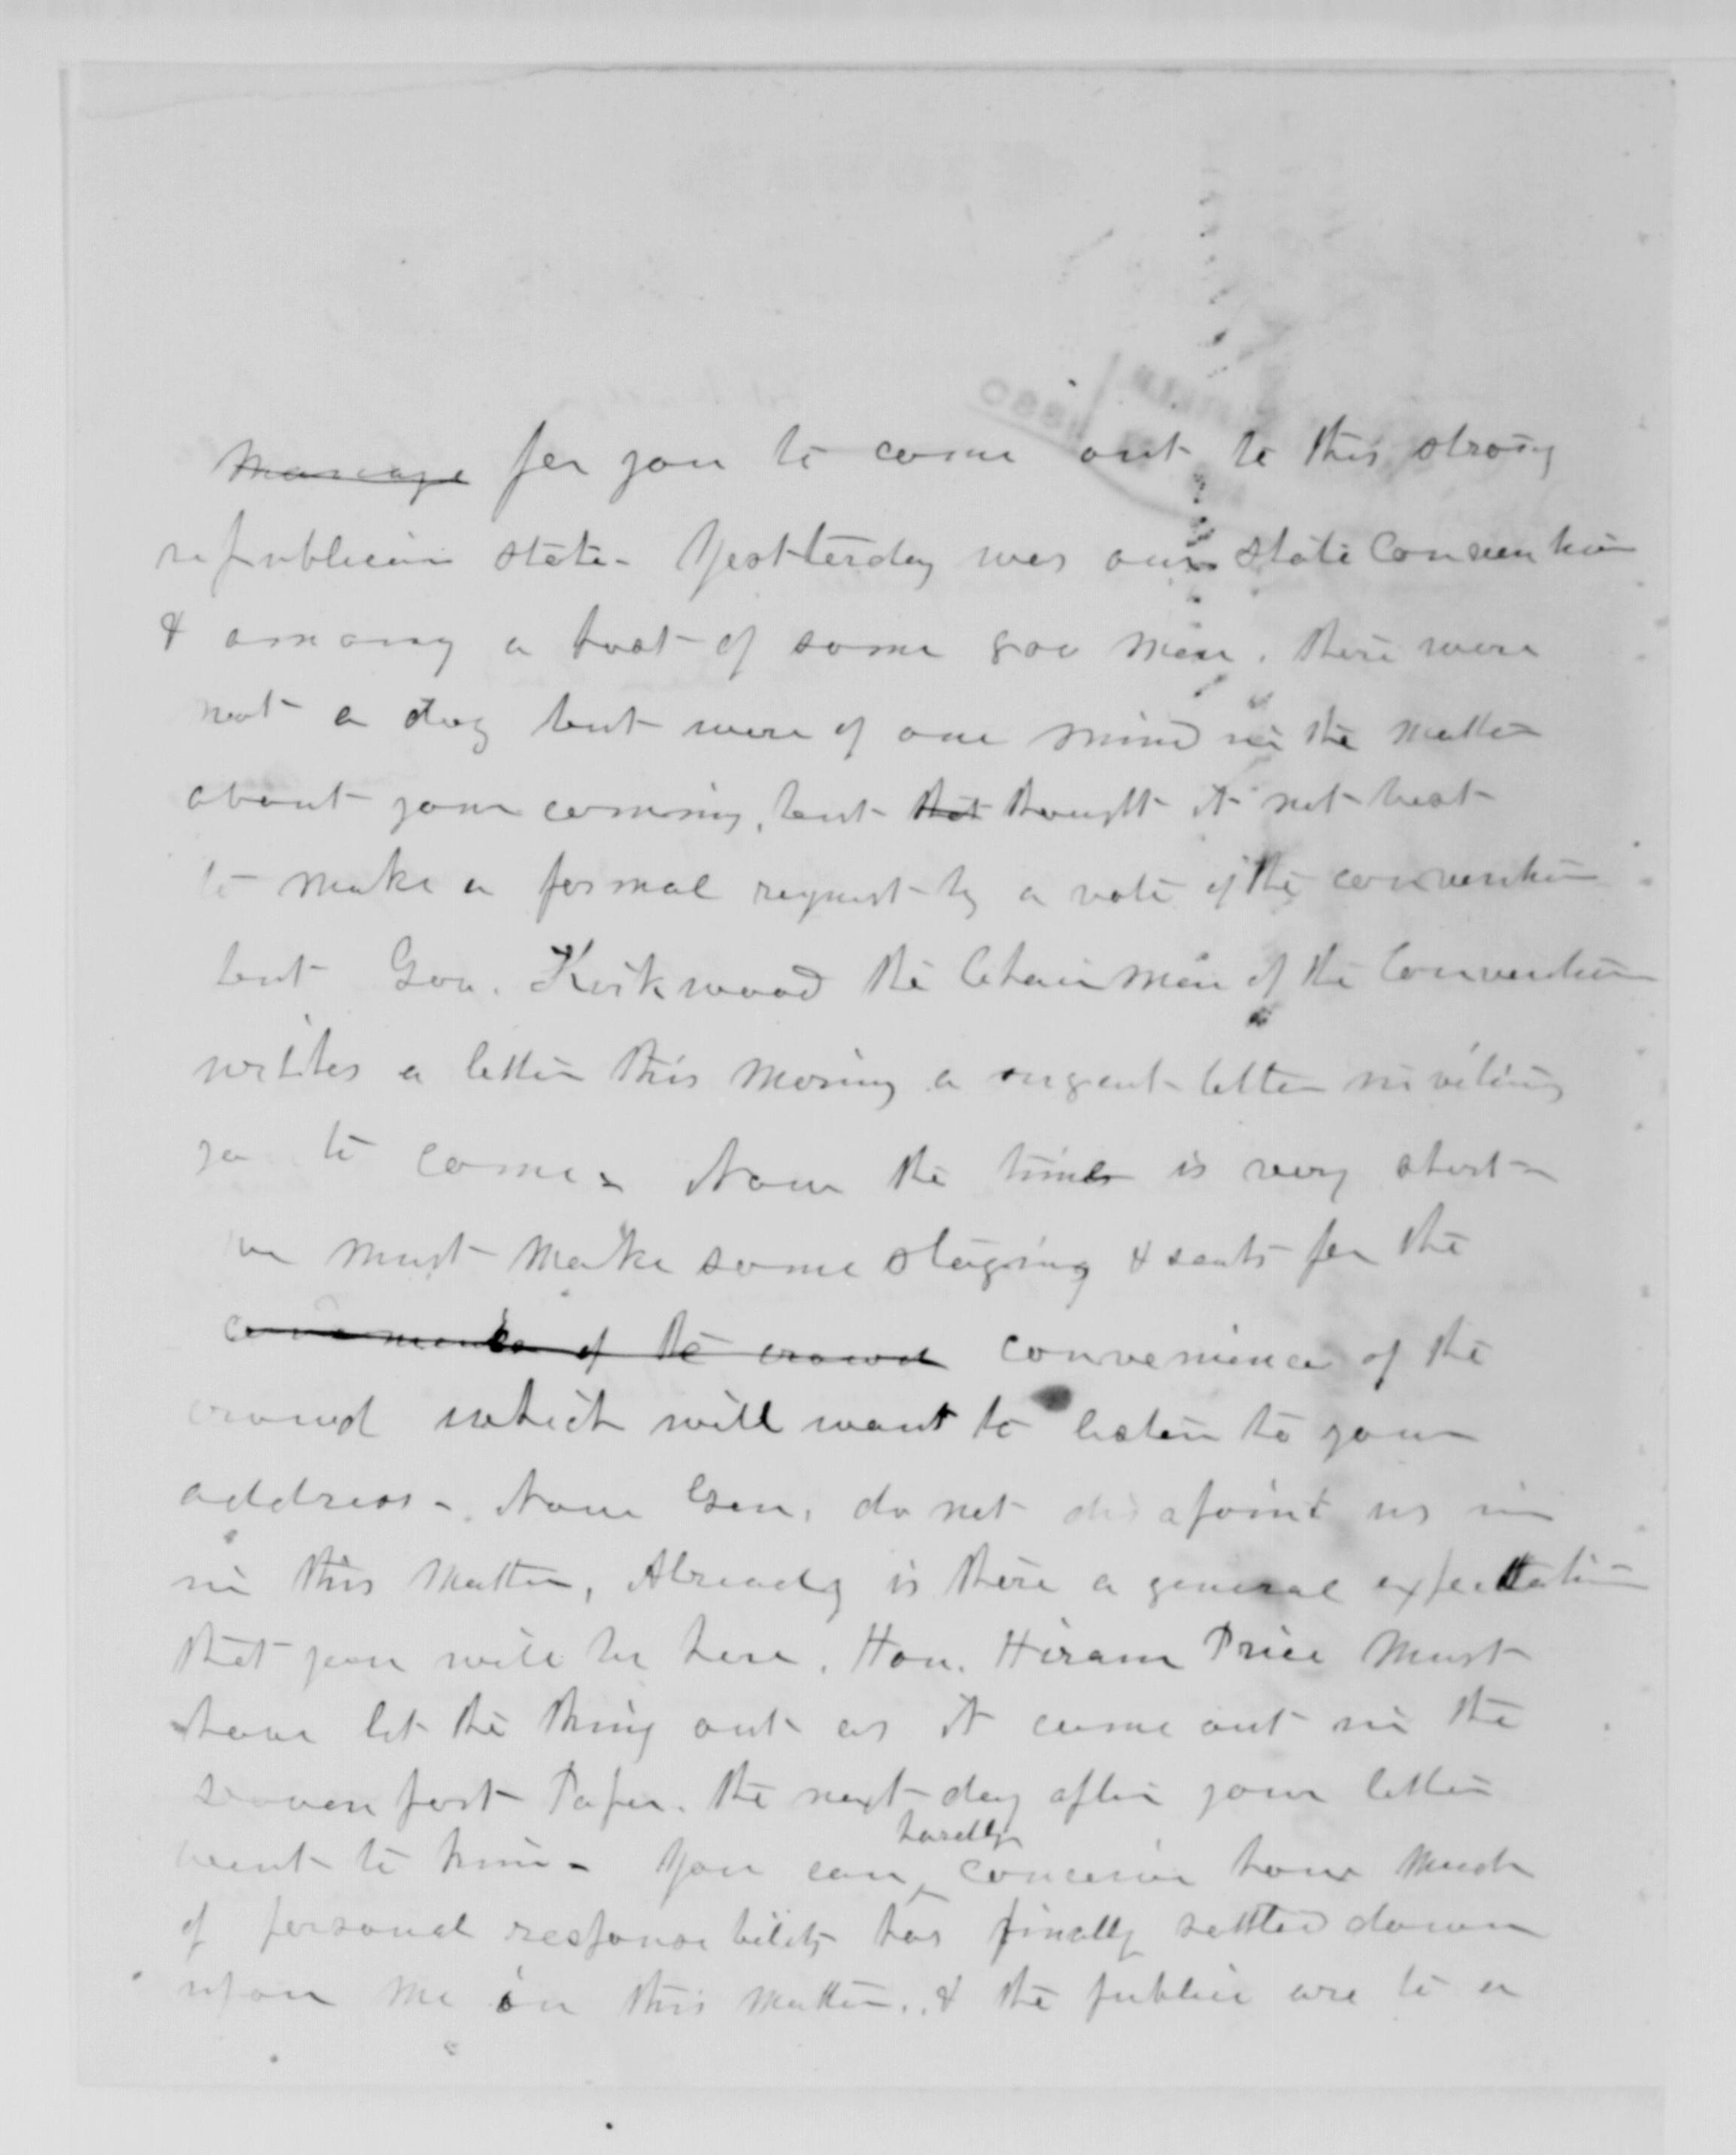 ~~manage~~ for you to come out to this strong
republican state - Yestterday was our state Convention
& among a host of some 800 men. there were
not a dog but were of one mind in the matter
about your coming, but ~~that~~ thought it not best
to make a formal request by a vote of the convention
but Gov. Kirkwood the Chairman of the Convention
writes a letter this morning a urgent letter inviting
you to come - Now the time is very short -
we must make some staging & seats for the
of the crowd convenience of the
crowd which will want to listen to your
address - Now Gen. do not disapoint us in
in this matter, Already is there a general expectation
that you will be here. Hon. Hiram Price must
have let the thing out as it came out in the
Davenport Paper. the next day after your letter
went to him - You can hardly conceive how much
of personal responsibility has finally settled down
upon me in this matter. & the public are to a